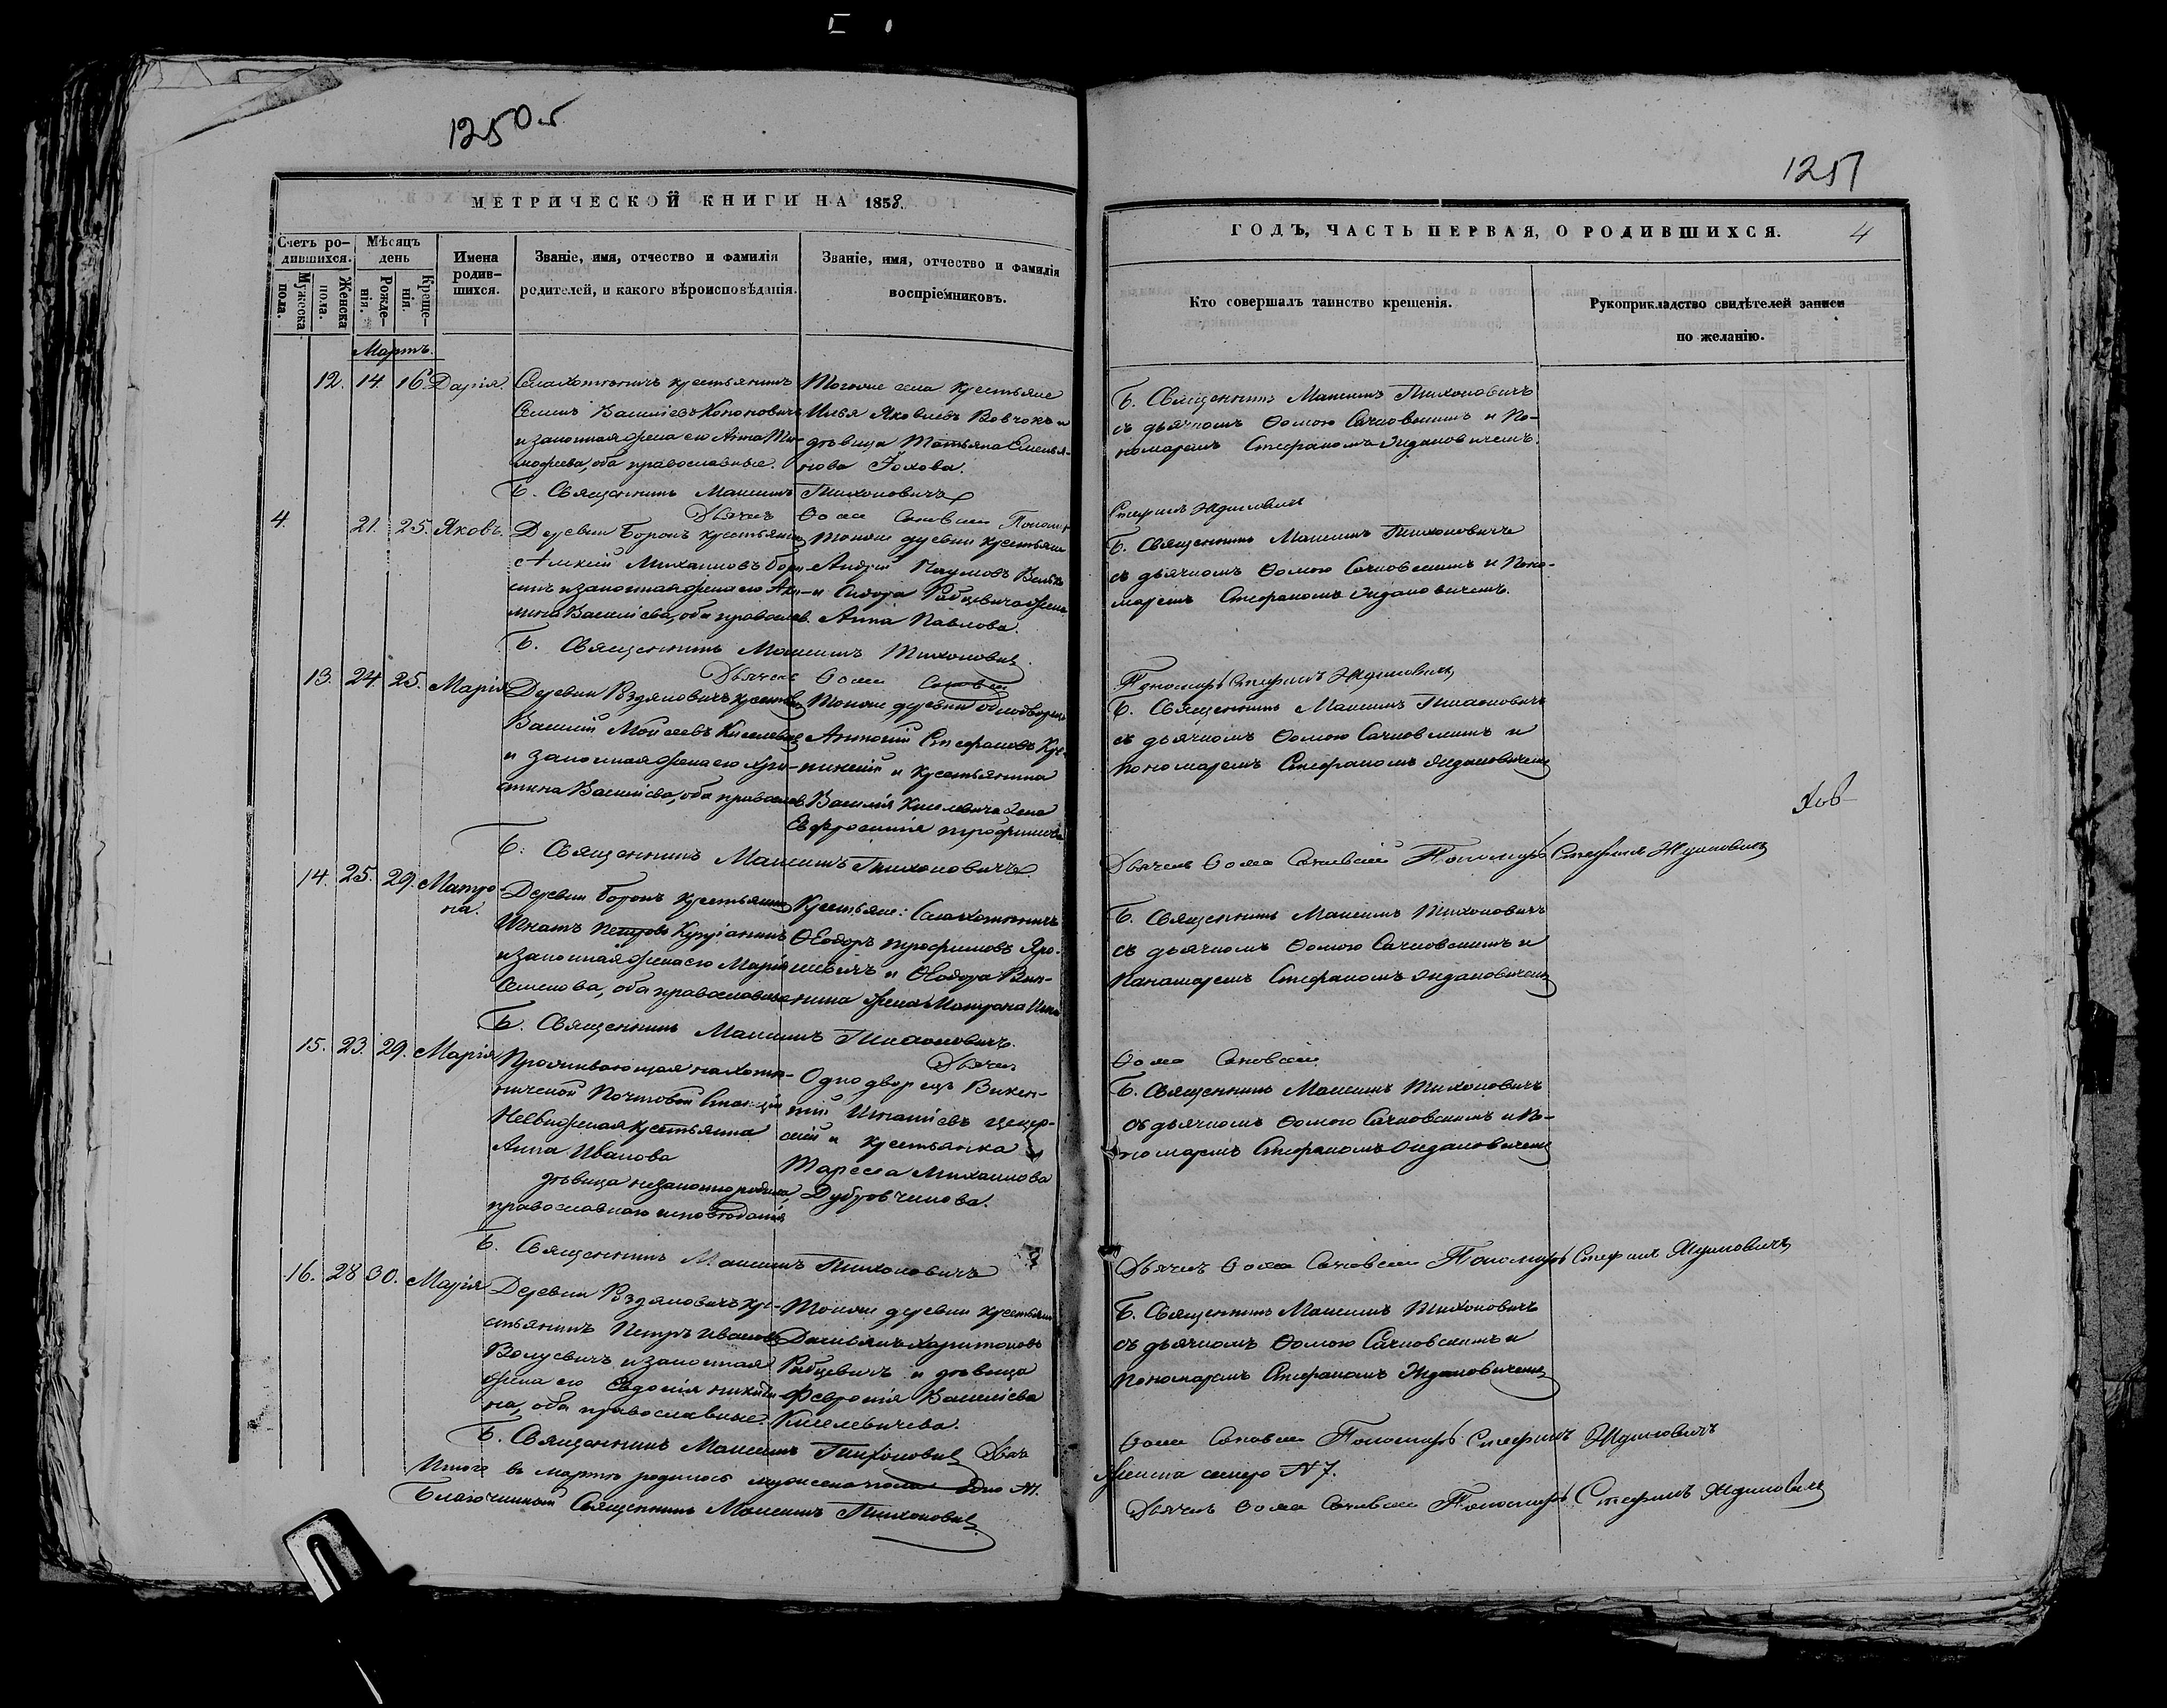 1250 об
МЕТРИЧЕСКОЙ КНИГИ НА 1858.
Счетъ ро-
дившихся.
Мужеска
пола.
Женска
пола.
Мѣсяцъ
день
Рожде-
нія.
Креще-
нія.
Имена
родив-
шихся.
Званіе, имя, отчество и фамилія
родителей, и какого вѣроисповѣданія.
Званіе, имя, отчество и фамилія
воспріемниковъ.
Мартъ.
12. 14. 16. Дарія.
Села Хотыничъ крестьянинъ
Семенъ Василіевъ Кононовичъ
и законная жена его Анна Ти-
мофеева, оба православные.
Тогоже села крестьяне
Илья Яковлевъ Вовчокъ и
дѣвица Татьяна Емелья-
нова
Б. Священникъ Максимъ Тихоновичъ
Дьячекъ Ѳома
4. 21. 25. Яковъ.
Деревни Борокъ крестьянинъ
Михаиловъ
и законная жена его Аку-
лина Василіева, оба православ.
Тойже деревни крестьяне
Андрей Наумовъ
и Сидора Рабцевича жена
Анна Павлова.
Б. Священникъ Максимъ Тихоновичъ
Дьячекъ Ѳома
13. 24. 25. Марія
Деревни Раздяловичъ крестьян.
Василій Моисеевъ Киселевичъ
и законная жена его Хри-
стина Василіева, оба православ
Тойже деревни однодворецъ
Антоній Стефановъ
и крестьянина
Василія Киселевича жена
Евфросинія Трофимова
Б. Священникъ Максимъ Тихоновичъ
14. 25. 29. Матро-
на.
Деревни Борокъ крестьянинъ
Игнатъ Петровъ
и законная жена его Марія
Семенова, оба православные
Крестьяне: Села Хотыничъ
Ѳеодоръ Трофимовъ Яро-
шевичъ и Ѳеодора
жена Матрона
Б. Священникъ Максимъ Тихоновичъ.
Дьячекъ
15. 23. 29. Марія
Проживающая на Хоты-
ничской Почтовой Станціи
крестьянка
Анна Иванова
дѣвица незаконнород.
православнаго исповѣданія
Однодворецъ Викен-
тій Игнатіевъ
и крестьянка
Тареса Михаилова
Дубровчикова.
Б. Священникъ Максимъ Тихоновичъ
16. 28 30. Марія
Деревни Раздяловичъ кре-
стьянинъ Петръ Ивановъ
и законная
жена его Евдокія Никити-
на, оба православные.
Тойже деревни крестьяне
Харитоновъ
Рабцевичъ и дѣвица
Февронія Василіева
Киселевичева.
Б. Священникъ Максимъ Тихоновичъ Дьяч
Итого въ мартѣ родилось мужеска пола одно №1.
Благочинный Священникъ Максимъ Тихоновичъ
1251
ГОДЪ, ЧАСТЬ ПЕРВАЯ, О РОДИВШИХСЯ.
4
Кто совершалъ таинство крещенія.
Рукоприкладство свидѣтелей записи
по желанію.
Б. Священникъ Максимъ Тихоновичъ
съ дьячкомъ Ѳомою Сачковскимъ и По-
номаремъ Стефаномъ Ждановичемъ.
Стефанъ Ждановичъ
Б. Священникъ Максимъ Тихоновичъ
съ дьячкомъ Ѳомою Сачковскимъ и Поно-
маремъ Стефаномъ Ждановичемъ.
Пономарь Стефанъ Ждановичъ
Б. Священникъ Максимъ Тихоновичъ
съ дьячкомъ Ѳомою Сачковскимъ и
пономаремъ Стефаномъ Ждановичемъ
Дьячекъ Ѳома Сачковскій Пономарь Стефанъ Ждановичъ
Б. Священникъ Максимъ Тихоновичъ
съ дьячкомъ Ѳомою Сачковскимъ и
Панамаремъ Стефаномъ Ждановичемъ
Ѳома Сачковскій
Б. Священникъ Максимъ Тихоновичъ
съ дьячкомъ Ѳомою Сачковскимъ и По-
номаремъ Стефаномъ Ждановичемъ
Дьячекъ Ѳома Сачковскій Пономарь Стефанъ Ждановичъ
Б. Священникъ Максимъ Тихоновичъ
съ дьячкомъ Ѳомою Сачковскимъ и
Пономаремъ Стефаномъ Ждановичемъ
Ѳома Сачковскій Пономарь Стефанъ Ждановичъ
женска семеро №7.
Дьячекъ Ѳома Сачковскій Пономарь Стефанъ Ждановичъ